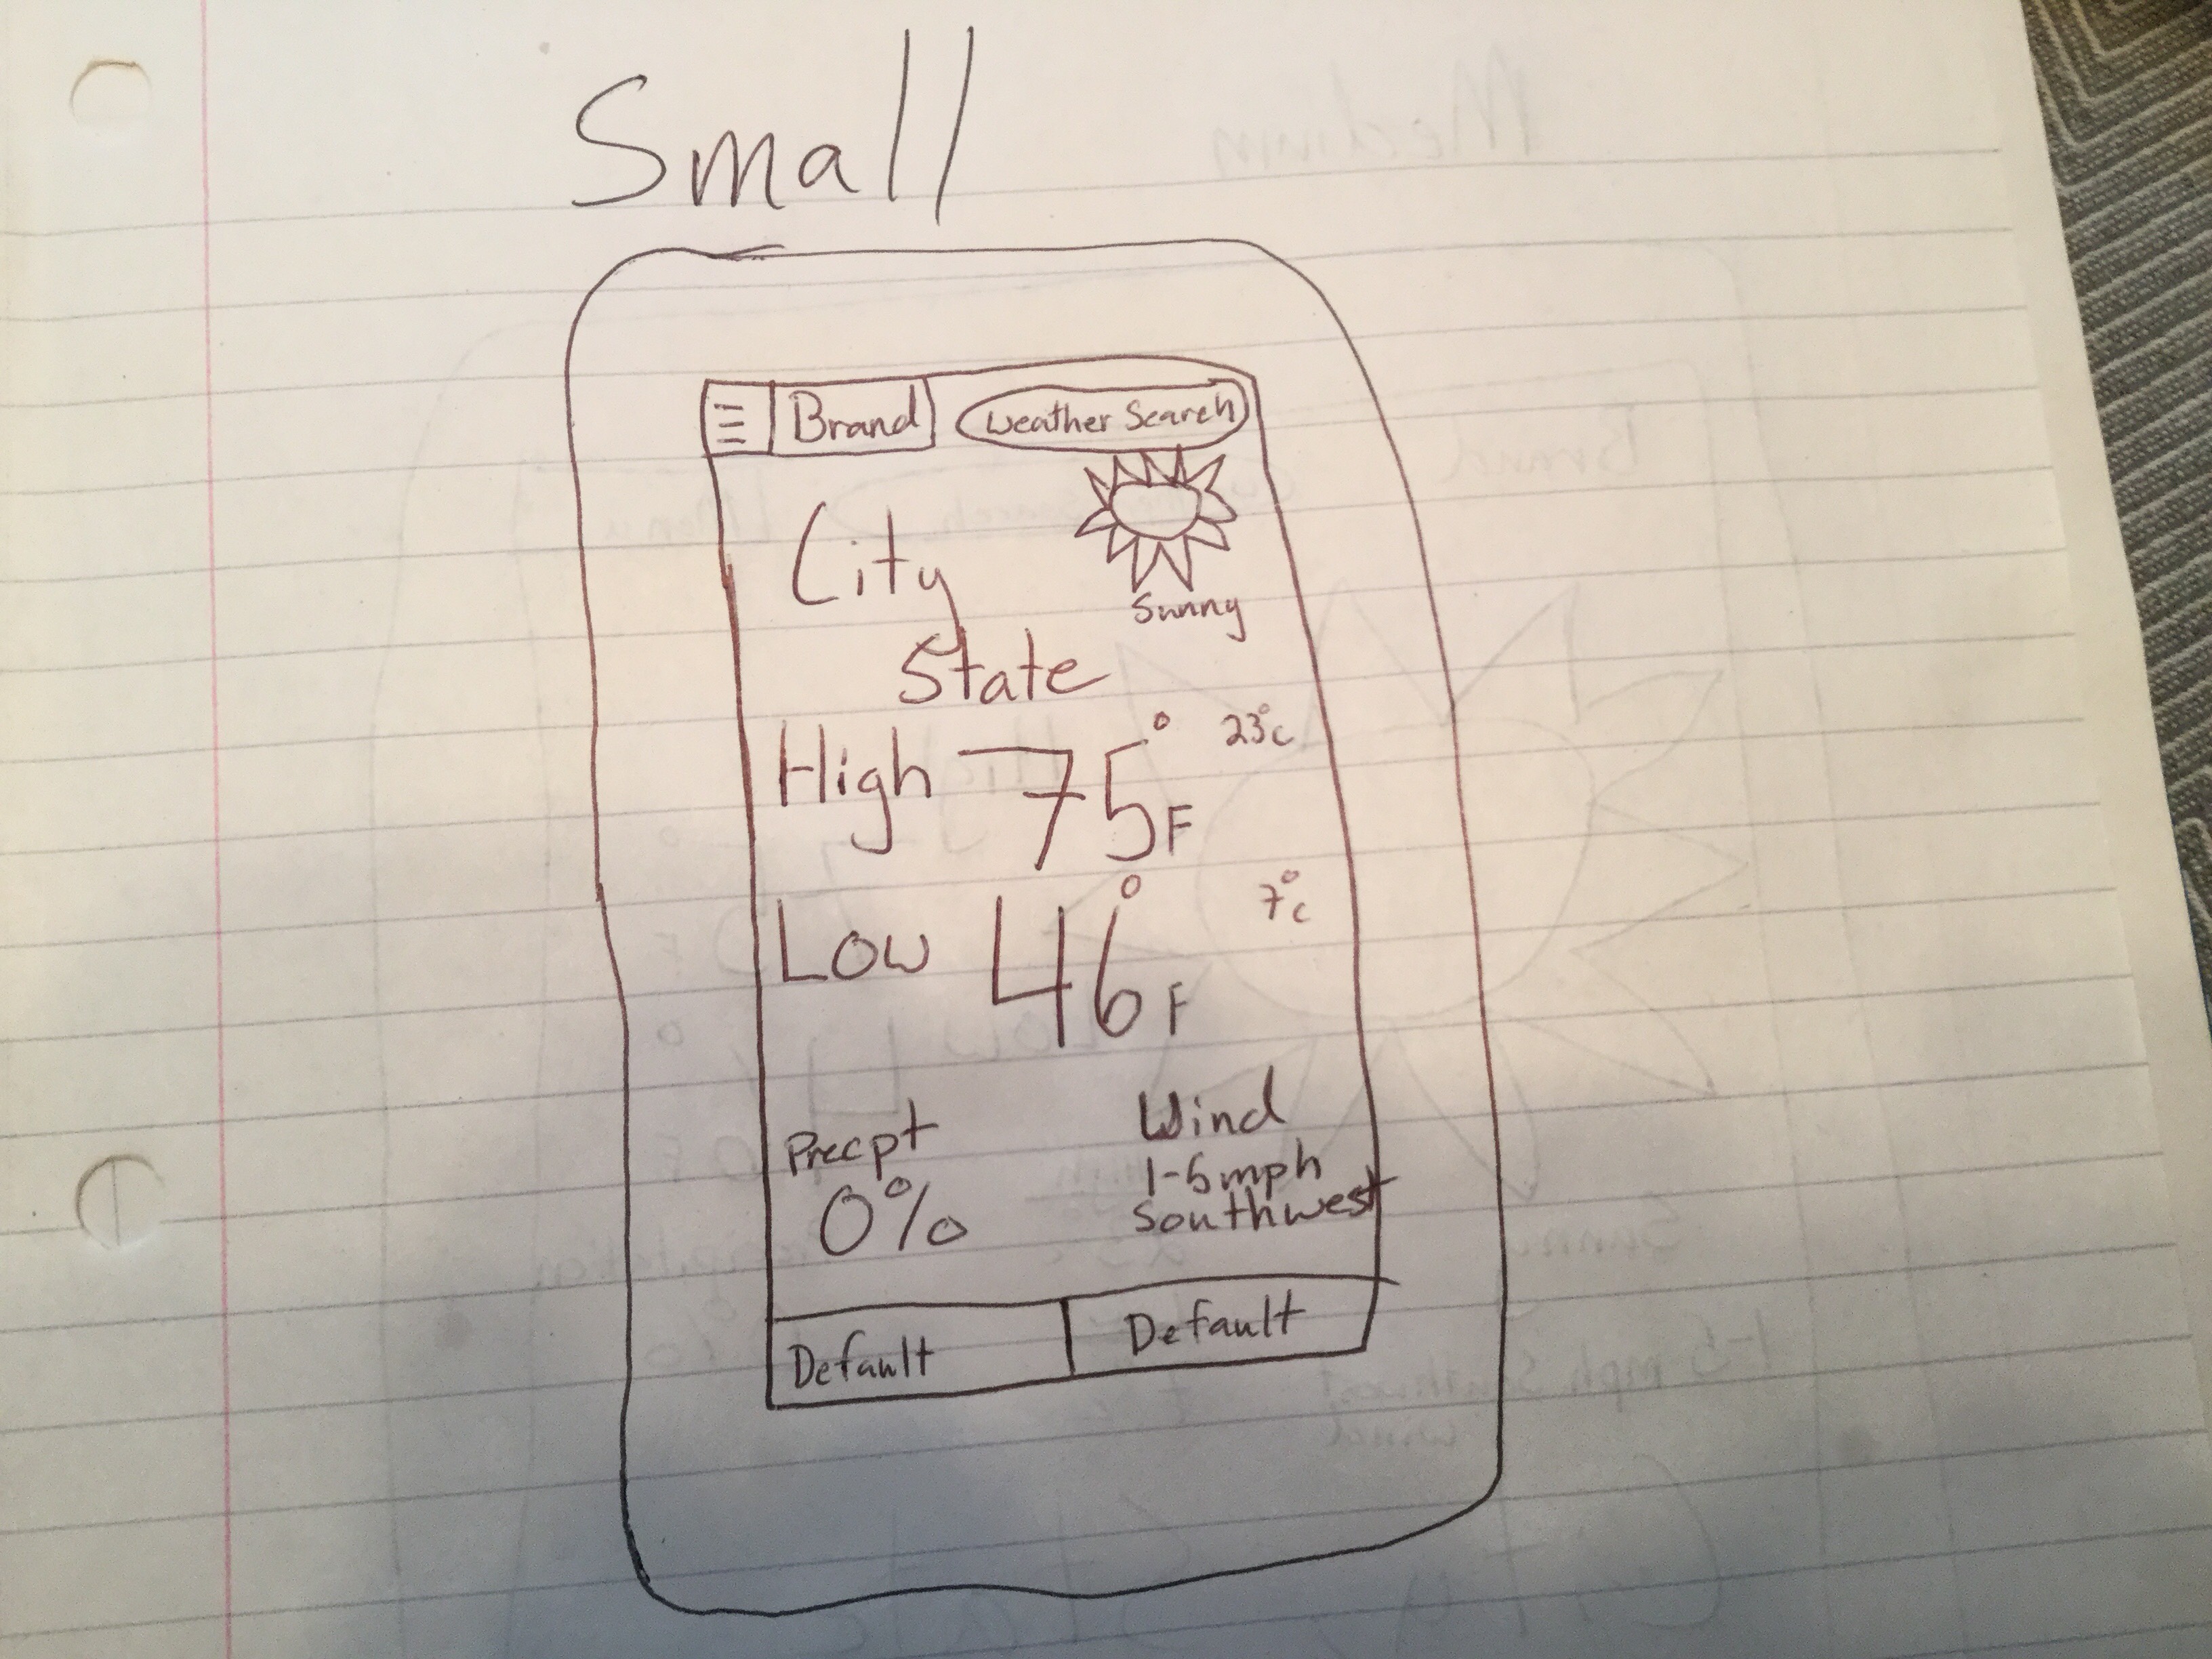 Small
☰ Brand Weather Search
City
Sunny
State
High 75°F 23°C
Low 46°F 7°C
Precpt Wind
0% 1-6mph
southwest
Default Default